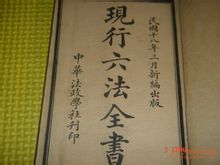 民國十八年三月新編出版
現行六法全書
中華法政學社刊印